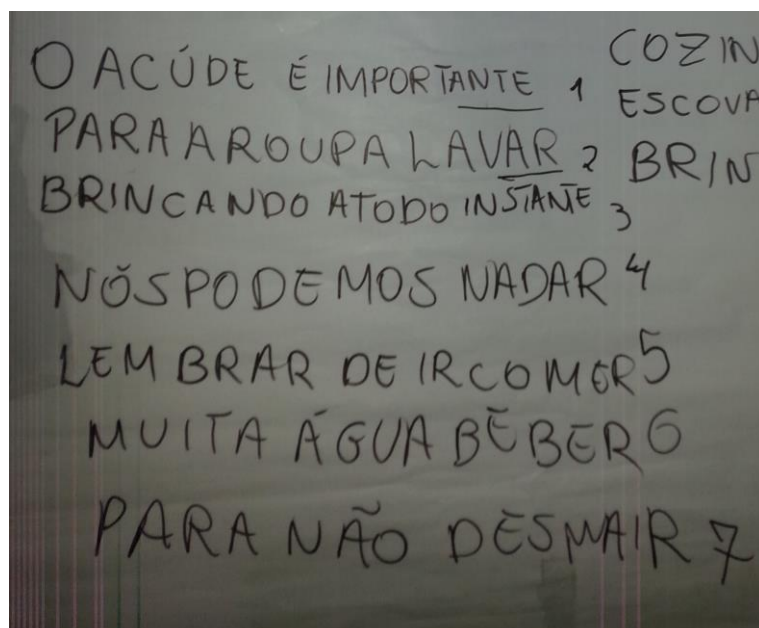 O ACÚDE É IMPORTANTE 1
PARA A ROUPA LAVAR 2
BRINCANDO ATODO INSTANTE 3
NÓS PODEMOS NADAR 4
LEMBRAR DE IR COMER 5
MUITA ÁGUA BEBER 6
PARA NÃO DESMAIR 7
COZIN
ESCOVA
BRIN